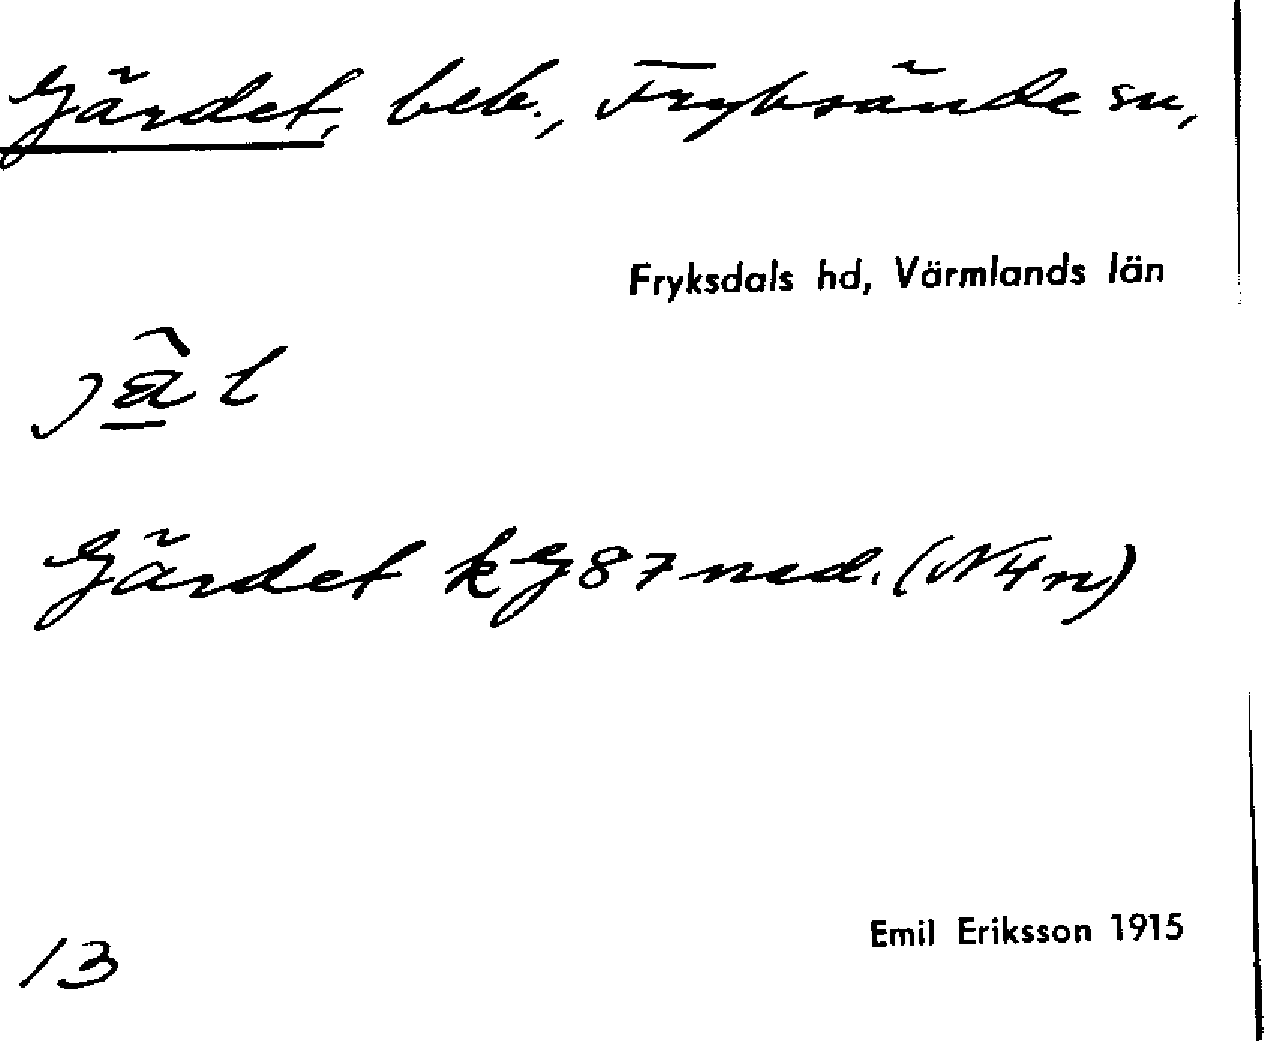 Gärdet, beb., Fryksände sn,
Fryksdals hd, Värmlands län
Gärdet kG87 ned. (N4n)
Emil Eriksson 1915
13